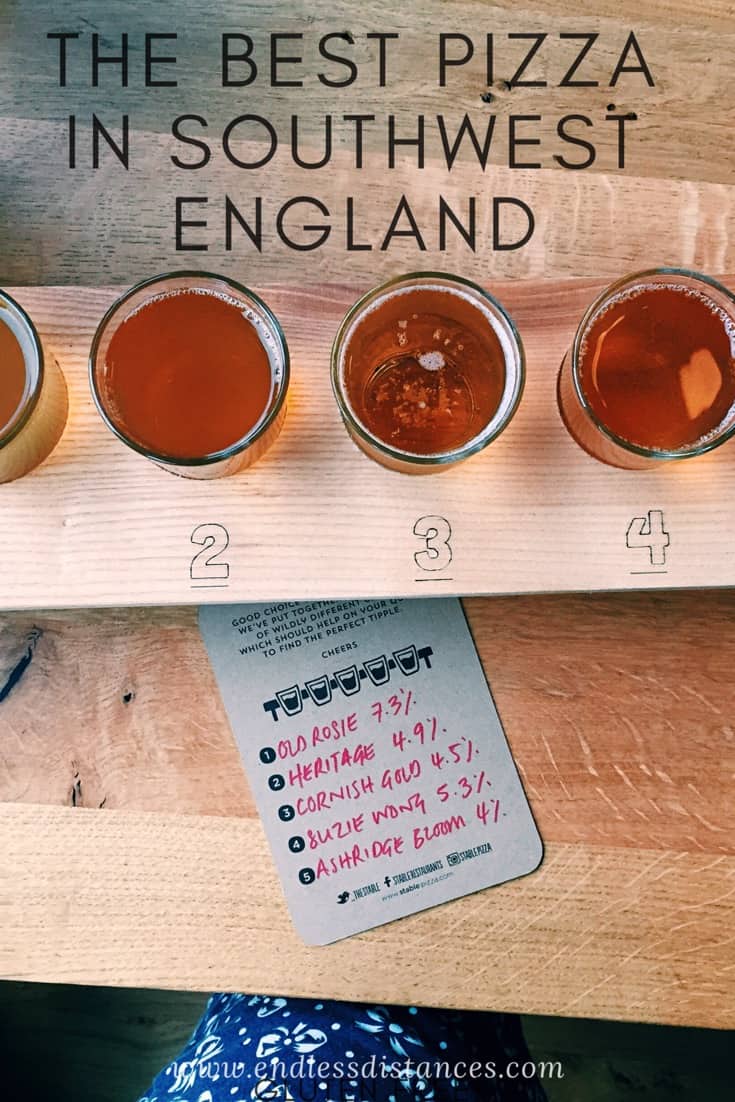 THE BEST PIZZA
IN SOUTHWEST
ENGLAND
2
3
4
GOOD CHOICE
WE'VE PUT TOGETHE
OF WILDLY DIFFERENT
WHICH SHOULD HELP ON YOUR
TO FIND THE PERFECT TIPPLE.
CHEERS
1 OLD ROSIE 7.3%
2 HERITAGE 4.9%
3 CORNISH GOLD 4.5%
4 SUZIE WONG 5.3%
5 ASHRIDGE BLOOM 4%
_THESTABLE STABLERESTAURANTS STABLEPIZZA
www.stablepizza.com
www.endlessdistances.com